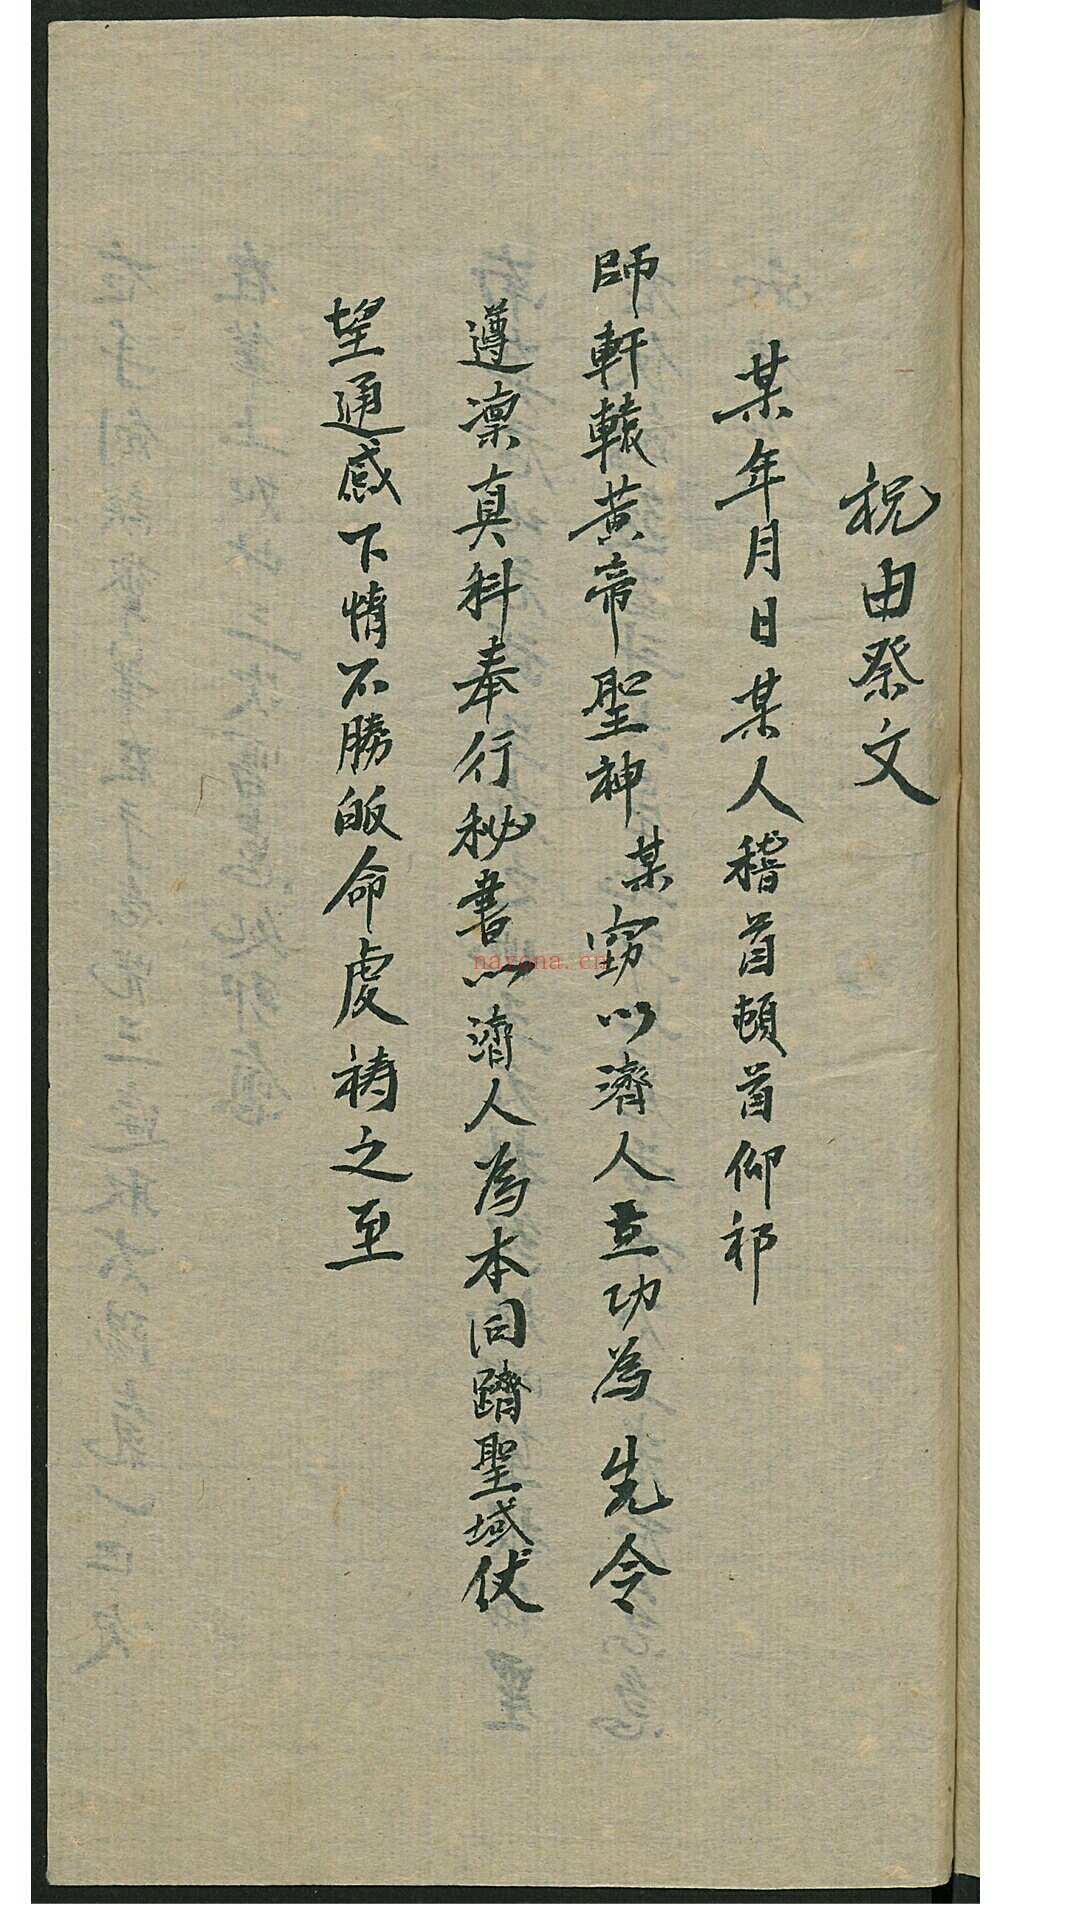 祝由祭文
某年月日某人稽首頓首仰祁
師軒轅黃帝聖神某窃以濟人立功為先令
遵凜真科奉行秘書以濟人為本同躋聖域伏
望通感下情不勝皈命虔祷之至
nayona.cn